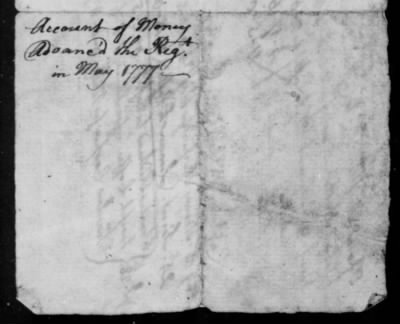 Account of Money
Advanc'd the Regt.
in May 1777